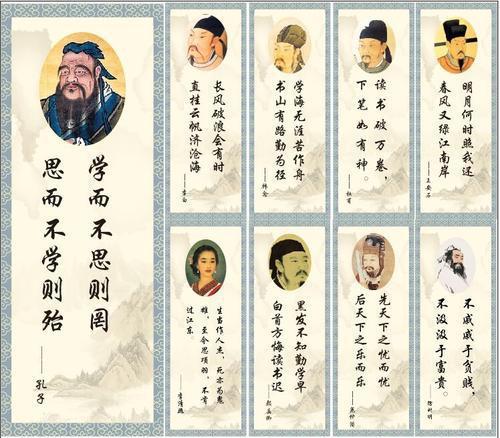 学而不思则罔
思而不学则殆
——孔子
长风破浪会有时
直挂云帆济沧海
——李白
学海无涯苦作舟
书山有路勤为径
——韩愈
读书破万卷，
下笔如有神。
——杜甫
明月何时照我还
春风又绿江南岸
——王安石
生当作人杰，死亦为鬼
雄，至今思项羽，不肯
过江东。
——李清照
黑发不知勤学早
白首方悔读书迟
——颜真卿
先天下之忧而忧
后天下之乐而乐
——范仲淹
不戚戚于贫贱，
不汲汲于富贵。
——陶渊明